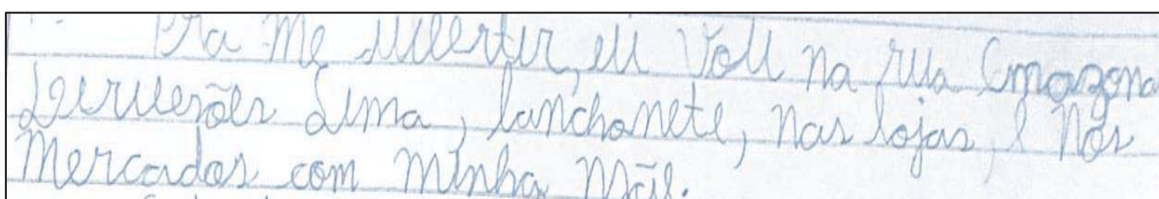 Pra me divertir, eu vou na rua Amazona
Lima, lanchonete, nas lojas, e nos
mercados com minha mãe.